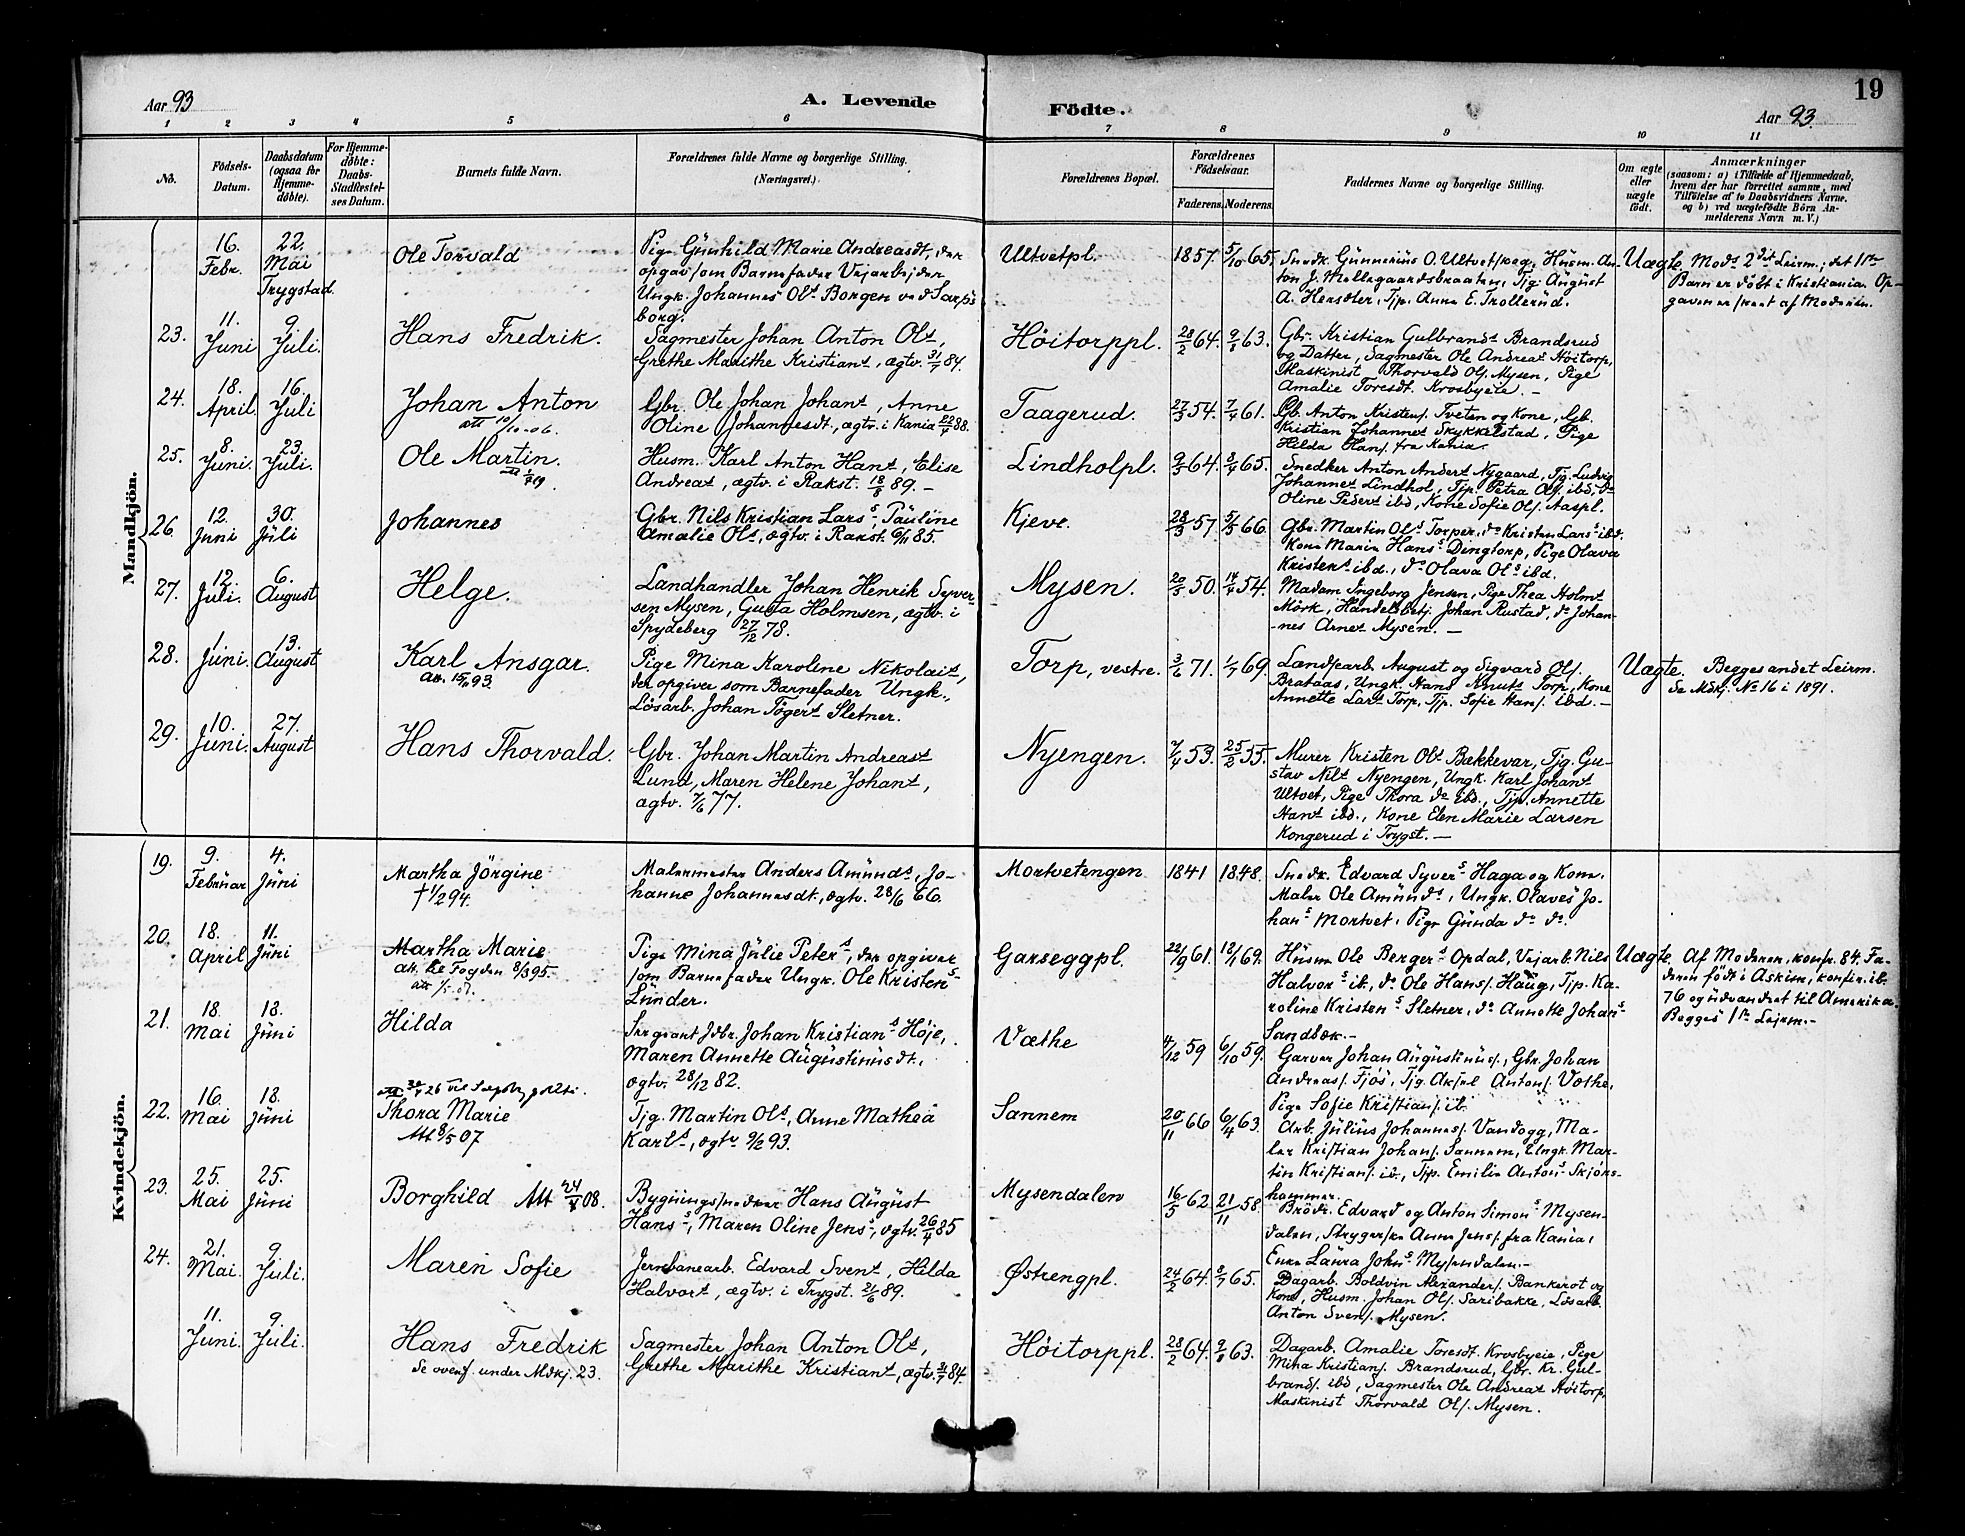 19
Aar 93
A. Levende
Födte.
Aar 93.
1 2 3 4 5 6 7 8 9 10 11
No.
Födsels-
Datum.
Daabsdatum
(ogsaa for
Hjemme-
døbte).
For Hjemme-
døbte:
Daabs-
Stadfæstel-
ses Datum.
Barnets fulde Navn.
Forældrenes fulde Navne og borgerlige Stilling.
(Næringsvei.)
Forældrenes Bopæl.
Forældrenes
Födselsaar.
Faderens.
Moderens.
Faddernes Navne og borgerlige Stilling.
Om ægte
eller
uægte
født.
Anmærkninger
(saasom: a) i Tilfælde af Hjemmedaab,
hvem der har forrettet samme, med
Tilföielse af to Daabsvidners Navne,
og b) ved uægtefödte Börn An-
melderens Navn m. V.)
Mandkjön.
16.
Febr.
22.
Mai
Trygstad.
Ole Torvald
Pige Gunhild Marie Andreasdt, der
opgav som Barnefader Vejarbejder
Ungk. Johannes Ols Borgen ved Sarps-
borg.
Ultvetpl.
1857.
5/10 65.
Snedk. Gunnerius O. Ultvetskog, Husm. An-
ton J. Mellegaardsbraaten, Tjg. August
A. Hersdter, Tjp. Anna E. Trollerud.
Uægte.
Mods 2det Leirm., det 1ste
Barn er døbt i Kristiania. Op-
gaven er skreet af Moderen.
23.
11.
Juni
9.
Juli.
Hans Fredrik.
Sagmester Johan Anton Ols,
Grethe Marithe Kristians, ægtv. 31/7 84.
Höitorppl.
28/2 64.
9/1 63.
Gbr. Kristian Gulbrands Brandsrud
og Datter, Sagmester Ole Andreas Höitorp,
Maskinist Thorvald Ols. Mysen, Pige
Amalie Toresdt. Krosbyeie. -
24.
18.
April.
16.
Juli
Johan Anton
att 19/10-06.
Gbr. Ole Johan Johans, Anne
Oline Johannesdt., ægtv. i Kania 22/4 88.
Taagerud.
27/3 54.
7/4 61.
Gb. Anton Kristens. Tveten og Kone, Gb.
Kristian Johannes Skykkelstad, Pige
Hilda Hans. fra Kania.
25.
8.
Juni.
23.
Juli.
Ole Martin.
Husm. Karl Anton Hans, Elise
Andreas, ægtv. i Rakst. 18/8 89. -
Lindholpl.
9/5 64.
8/4 65.
Snedker Anton Anders Nygaard, Tjg. Ludvig
Johannes Lindhol, Tjp. Petra Ols. ibd, do
Oline Peders ibd, Kone Sofie Ols. Aaspl.
26.
12.
Juni
30.
Juli
Johannes
Gbr. Nils Kristian Lars, Pauline
Amalie Ols, ægtv. i Rakst. 6/11 85.
Kjeve.
28/3 57.
5/5 66.
Gbr. Martin Ols Torper, do Kristen Lars ibd.
Kone Maria Hans Dingtorp, Pige Olava
Kristens ibd., do Olava Ols ibd.
27.
12.
Juli.
6.
August
Helge.
Landhandler Johan Henrik Syver-
sen Mysen, Gusta Holmsen, ægtv. i
Spydeberg 27/12 78.
Mysen.
20/5 50.
14/4 54.
Madam Ingeborg Jensen, Pige Thea Holms
Mörk, Handelsbetj. Johan Rustad, do Johan-
-nes Arnes Mysen. -
28.
1.
Juni.
13.
August
Karl Ansgar.
Att. 15/11 93.
Pige Mina Karoline Nikolais,
der opgiver som Barnefader Ungk.,
Lösarb. Johan Tögers Sletner.
Torp, vestre.
3/6 71.
1/7 69.
Landsarb. August og Sigvard Ols.
Brataas, Ungk. Hans Knuts Torp, Kone
Annette Lars Torp, Tjp. Sofie Hans. ibd. -
Uægte.
Begges andet Leirm.
Se Mdkj. No 16 i 1891.
29.
10.
Juni.
27.
August
Hans Thorvald.
Gbr. Johan Martin Andreas
Lund, Maren Helene Johans,
ægtv. 7/6 77.
Nyengen.
7/4 53.
25/2 55.
Murer Kristen Ols Bækkevar, Tjg. Gu-
stav Nils Nyengen, Ungk. Karl Johans
Ultvet, Pige Thora do ibd., Tjp. Annette
Hans ibd., Kone Elen Marie Larsen
Kongerud i Trygst. -
Kvindekjön.
19.
9.
Februar
4.
Juni
Martha Jörgine
† 1/2 94.
Malermester Anders Amunds, Jo-
hanne Johannesdt., ægtv. 28/6 66.
Mortvetengen
1841
1848.
Snedk. Edvard Syvers Haga og Kone.
Maler Ole Amunds, Ungk. Olaves Jo-
hans Mortvet, Pige Gunda do do.
20.
18.
April
11.
Juni
Martha Marie
Att. til Fogden 8/3 95.
att 1/5.07.
Pige Mina Julie Peters, der opgiver
som Barnefader Ungk. Ole Kristens
Lunder.
Garseggpl.
22/9 61.
12/1 69.
Husm Ole Bergers Opdal, Vejarb. Nils
Halvors ib., do Ole Hans. Haug, Tjp. Ka-
roline Kristens Sletner, do Annette Johans
Sandbæk. -
Uægte
Af Moderen, konfr. 84. Fa-
deren födt i Askim, konfir. ib.
76 og udvandret til Amerika.
Begges 1ste Leirm. -
21.
18.
Mai
18.
Juni
Hilda
Sergeant Jdbr. Johan Kristians Höje,
Maren Annette Augustinusdt.,
ægtv. 28/12 82.
Væthe
4/12 59
6/10 59.
Garver Johan Augustinus., Gbr. Johan
Andreas. Fjös, Tjg. Aksel Antons. Vøthe,
Pige Sofie Kristians. ib.
22.
16.
Mai
18.
Juni
Thora Marie
Att 8/5 07
Tjg. Martin Ols, Anne Mathea
Karls, ægtv. 9/2 93.
Sannem
20/11 66
6/4 63.
Arb. Julius Johannes. Vandugg, Ma-
ler Kristian Johans. Sannem, Ungk. Mar-
tin Kristians. ib., Tjp. Emilie Antons Skjöns-
hammer.
23.
25.
Mai
25.
Juni
Borghild Att 24/8 08.
Bygningssnedker Hans August
Hans, Maren Oline Jens, ægtv. 26/4 85
Mysendalen
16/5 62
21/11 58.
Brödr. Edvard og Anton Simons Mysen-
dalen, Strygerske Anna Jens. fra Kania,
Enke Laura Johs Mysendalen. -
24.
21.
Mai.
9.
Juli.
Maren Sofie
Jernbanearb. Edvard Svens, Hilda
Halvors, ægtv. i Trygst. 21/6 89.
Østrengpl.
24/2 64.
8/7 65.
Dagarb. Boldvin Alexanders. Bankerot og
Kone, Husm. Johan Ols. Saribakke, Lösarb.
Anton Svens. Mysen.
11.
Juni.
9.
Juli.
Hans Fredrik
Se ovenf. under Mdkj. 23.
Sagmester Johan Anton Ols,
Grethe Marithe Kristians, ægtv. 31/7 84.
Höitorppl.
28/2 64.
9/1 63.
Dagarb. Amalie Toresdt. Krosbyeie, Pige
Mina Kristians. Brandsrud, Gbr. Kr. Gul-
brands. ibd, Sagmester Ole Andreas Höitorp,
Maskinist Thorvald Ols. Mysen.